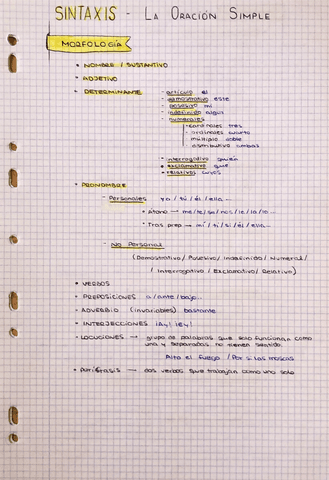 SINTAXIS - LA ORACIÓN SIMPLE
MORFOLOGÍA
• NOMBRE / SUSTANTIVO
• ADJETIVO
• DETERMINANTE - artículo el
- demostrativo este
- posesivo mi
- indefinido algún
- numerales
cardinales tres
ordinales cuarto
múltiplo doble
distributivo ambos
- interrogativo quién
- exclamativo que
- relativos cuyos
• PRONOMBRE
- Personales yo / tú / él / ella...
• Átono → me/te/se/nos/le/la/lo...
• Tras prep → mí / ti / sí / él / ella...
- No Personal
(Demostrativo / Posesivo / Indefinido / Numeral /
/ Interrogativo / Exclamativo / Relativo)
• VERBOS
• PREPOSICIONES a/ante/bajo...
• ADVERBIO (invariables) bastante
• INTERJECCIONES ¡Ay! ¡ey!
• LOCUCIONES → grupo de palabras que solo funcionan como
una y separadas no tienen sentido.
Alto el fuego / Por si las moscas
• PERÍFRASIS → dos verbos que trabajan como uno solo